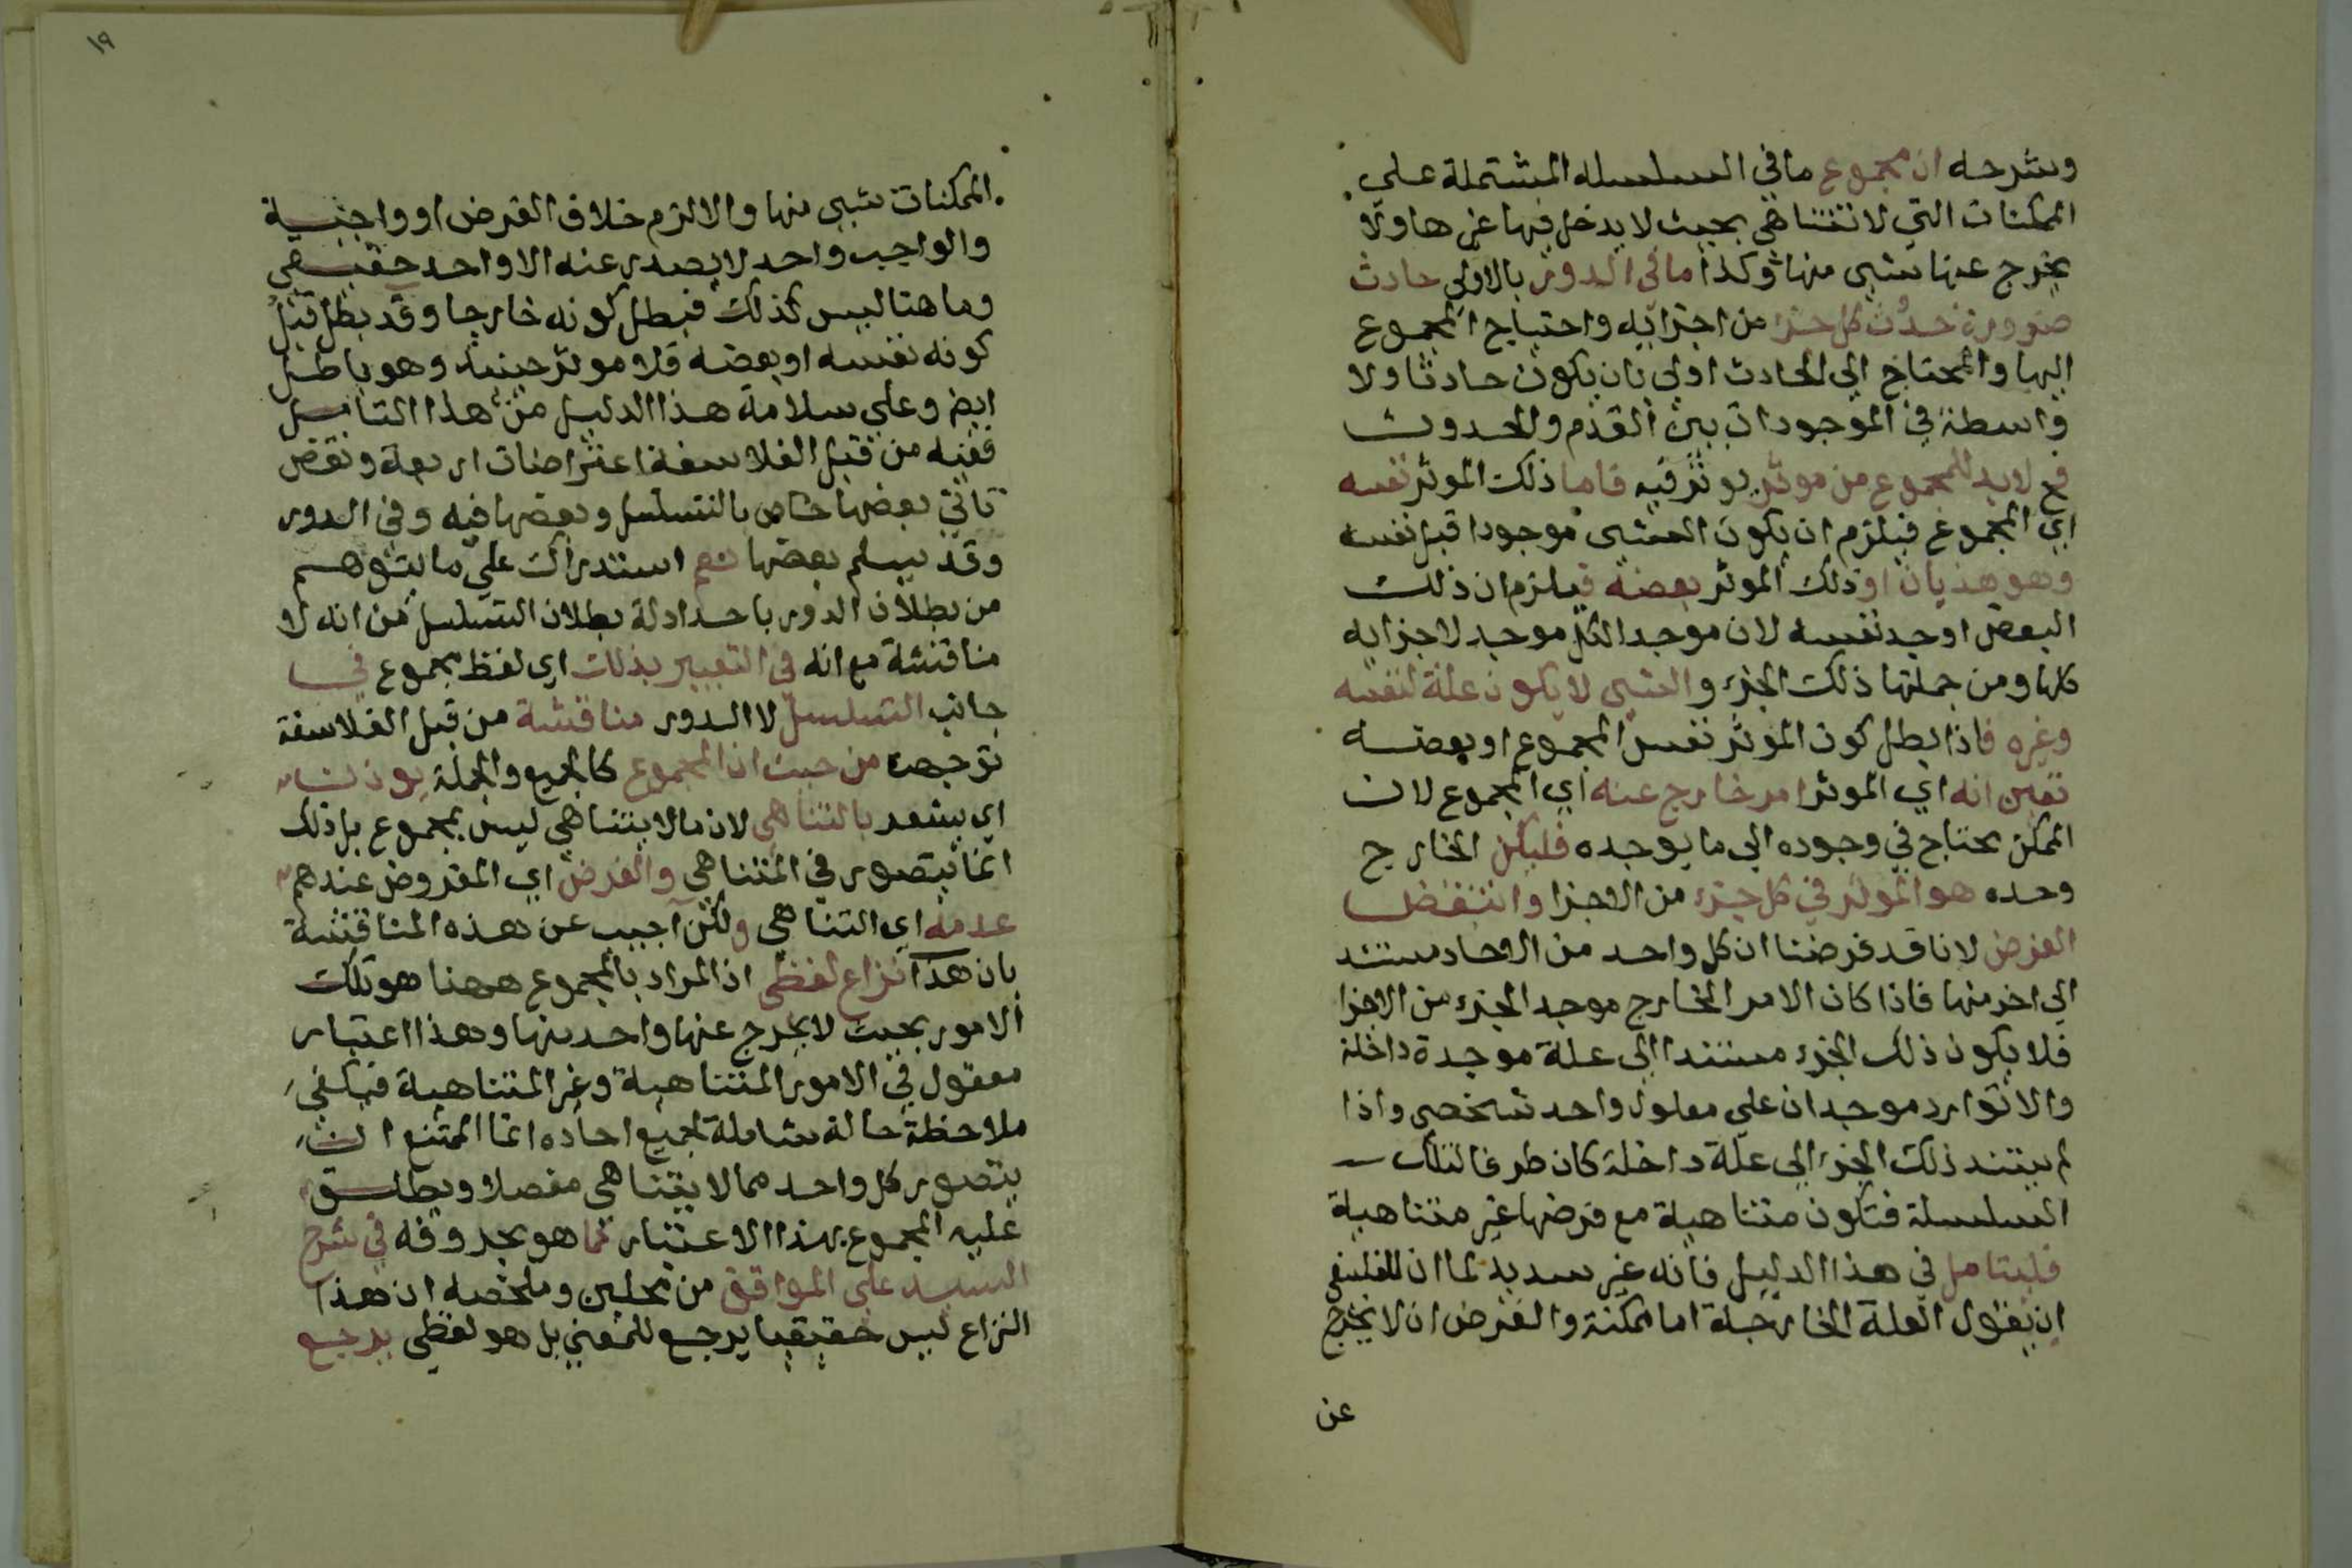 وشرحه ان مجموع ما في السلسله المشتملة على
الممكنات التي لا تتناهي بحيث لا يدخل فيها غيرها ولا
يخرج عنها شيى منها وكذا ما في الدور بالاولي حادث
ضرورة حدوث كل جزء من اجزايه واحتياج المجموع
اليها والمحتاج الي الحادث اولي بان يكون حادثا ولا
واسطة في الموجودات بين القدم والحدوث
فح لابد للمجموع من موثر يوثر فيه فاما ذلك الموثر نفسه
اي المجموع فيلزم ان يكون الشيى موجودا قبل نفسه
وهو هذيان او ذلك الموثر بعضه فيلزم ان ذلك
البعض اوجد نفسه لان موجد الكل موجد لاجزايه
كلها ومن جملتها ذلك الجزء والشيى لا يكون علة لنفسه
وغيره فاذا بطل كون الموثر نفس المجموع او بعضه
تعين انه اي الموثر امر خارج عنه اي المجموع لان
الممكن يحتاج في وجوده الي ما يوجده فليكن الخارج
وحده هو الموثر في كل جزء من الاجزا وانتقض
الفرض لانا قد فرضنا ان كل واحد من الاحاد مستند
الي اخر منها فاذا كان الامر الخارج موجد الجزء من الاجزا
فلا يكون ذلك الجزء مستندا الي علة موجدة داخلة
والا توارد موجدان علي معلول واحد شخصي واذا
لم يستند ذلك الجزء الي علة داخلة كان طرفا لتلك
السلسلة فتكون متناهية مع فرضها غير متناهية
فليتامل في هذا الدليل فانه غير سديد لما ان للفلسفي
ان يقول العلة الخارجة اما ممكنة والفرض ان لا يخرج
عن
١٩
الممكنات شيى منها والا لزم خلاف الفرض او واجبية
والواجب واحد لا يصدر عنه الا واحد حقيقي
وما هنا ليس كذلك فبطل كونه خارجا وقد بطل قبل
كونه نفسه او بعضه فلا موثر حينيذ وهو باطل
ايضا وعلي سلامة هذا الدليل من هذا التامل
ففيه من قبل الفلاسفة اعتراضات اربعة ونقض
تاتي بعضها خاص بالتسلسل وبعضها فيه وفي الدور
وقد يسلم بعضها نعم استدراك علي ما يتوهم
من بطلان الدور باحد ادلة بطلان التسلسل من انه لا
مناقشة مع انه في التعبير بذلك اي لفظ مجموع في
جانب التسلسل لا الدور مناقشة من قبل الفلاسفة
توجهت من حيث ان المجموع كالجميع والجملة يوذن
اي يشعر بالتناهي لان ما لا يتناهي ليس بمجموع بل ذلك
انما يتصور في المتناهي والفرض اي المفروض عندهم
عدمه اي التناهي ولكن اجيب عن هذه المناقشة
بان هذا نزاع لفظي اذ المراد بالمجموع ههنا هو تلك
الامور بحيث لا يخرج عنها واحد منها وهذا اعتبار
معقول في الامور المتناهية وغير المتناهية فيكفي
ملاحظة حالة شاملة لجميع احاده انما الممتنع ان
يتصور كل واحد مما لا يتناهي مفصلا ويطلق
عليه المجموع بهذا الاعتبار كما هو بحروفه في شرح
السيد علي المواقف من محلين وملخصه ان هذا
النزاع ليس حقيقيا يرجع للمعني بل هو لفظي يرجع